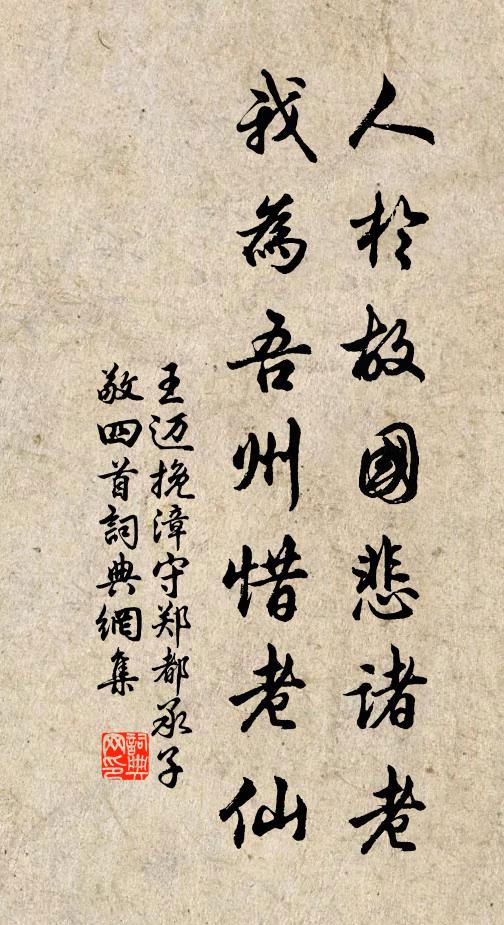 人於故國悲诸老
我為吾州惜老仙
王迈挽漳守郑都承子
敬四首詞典網集
詞典
网印